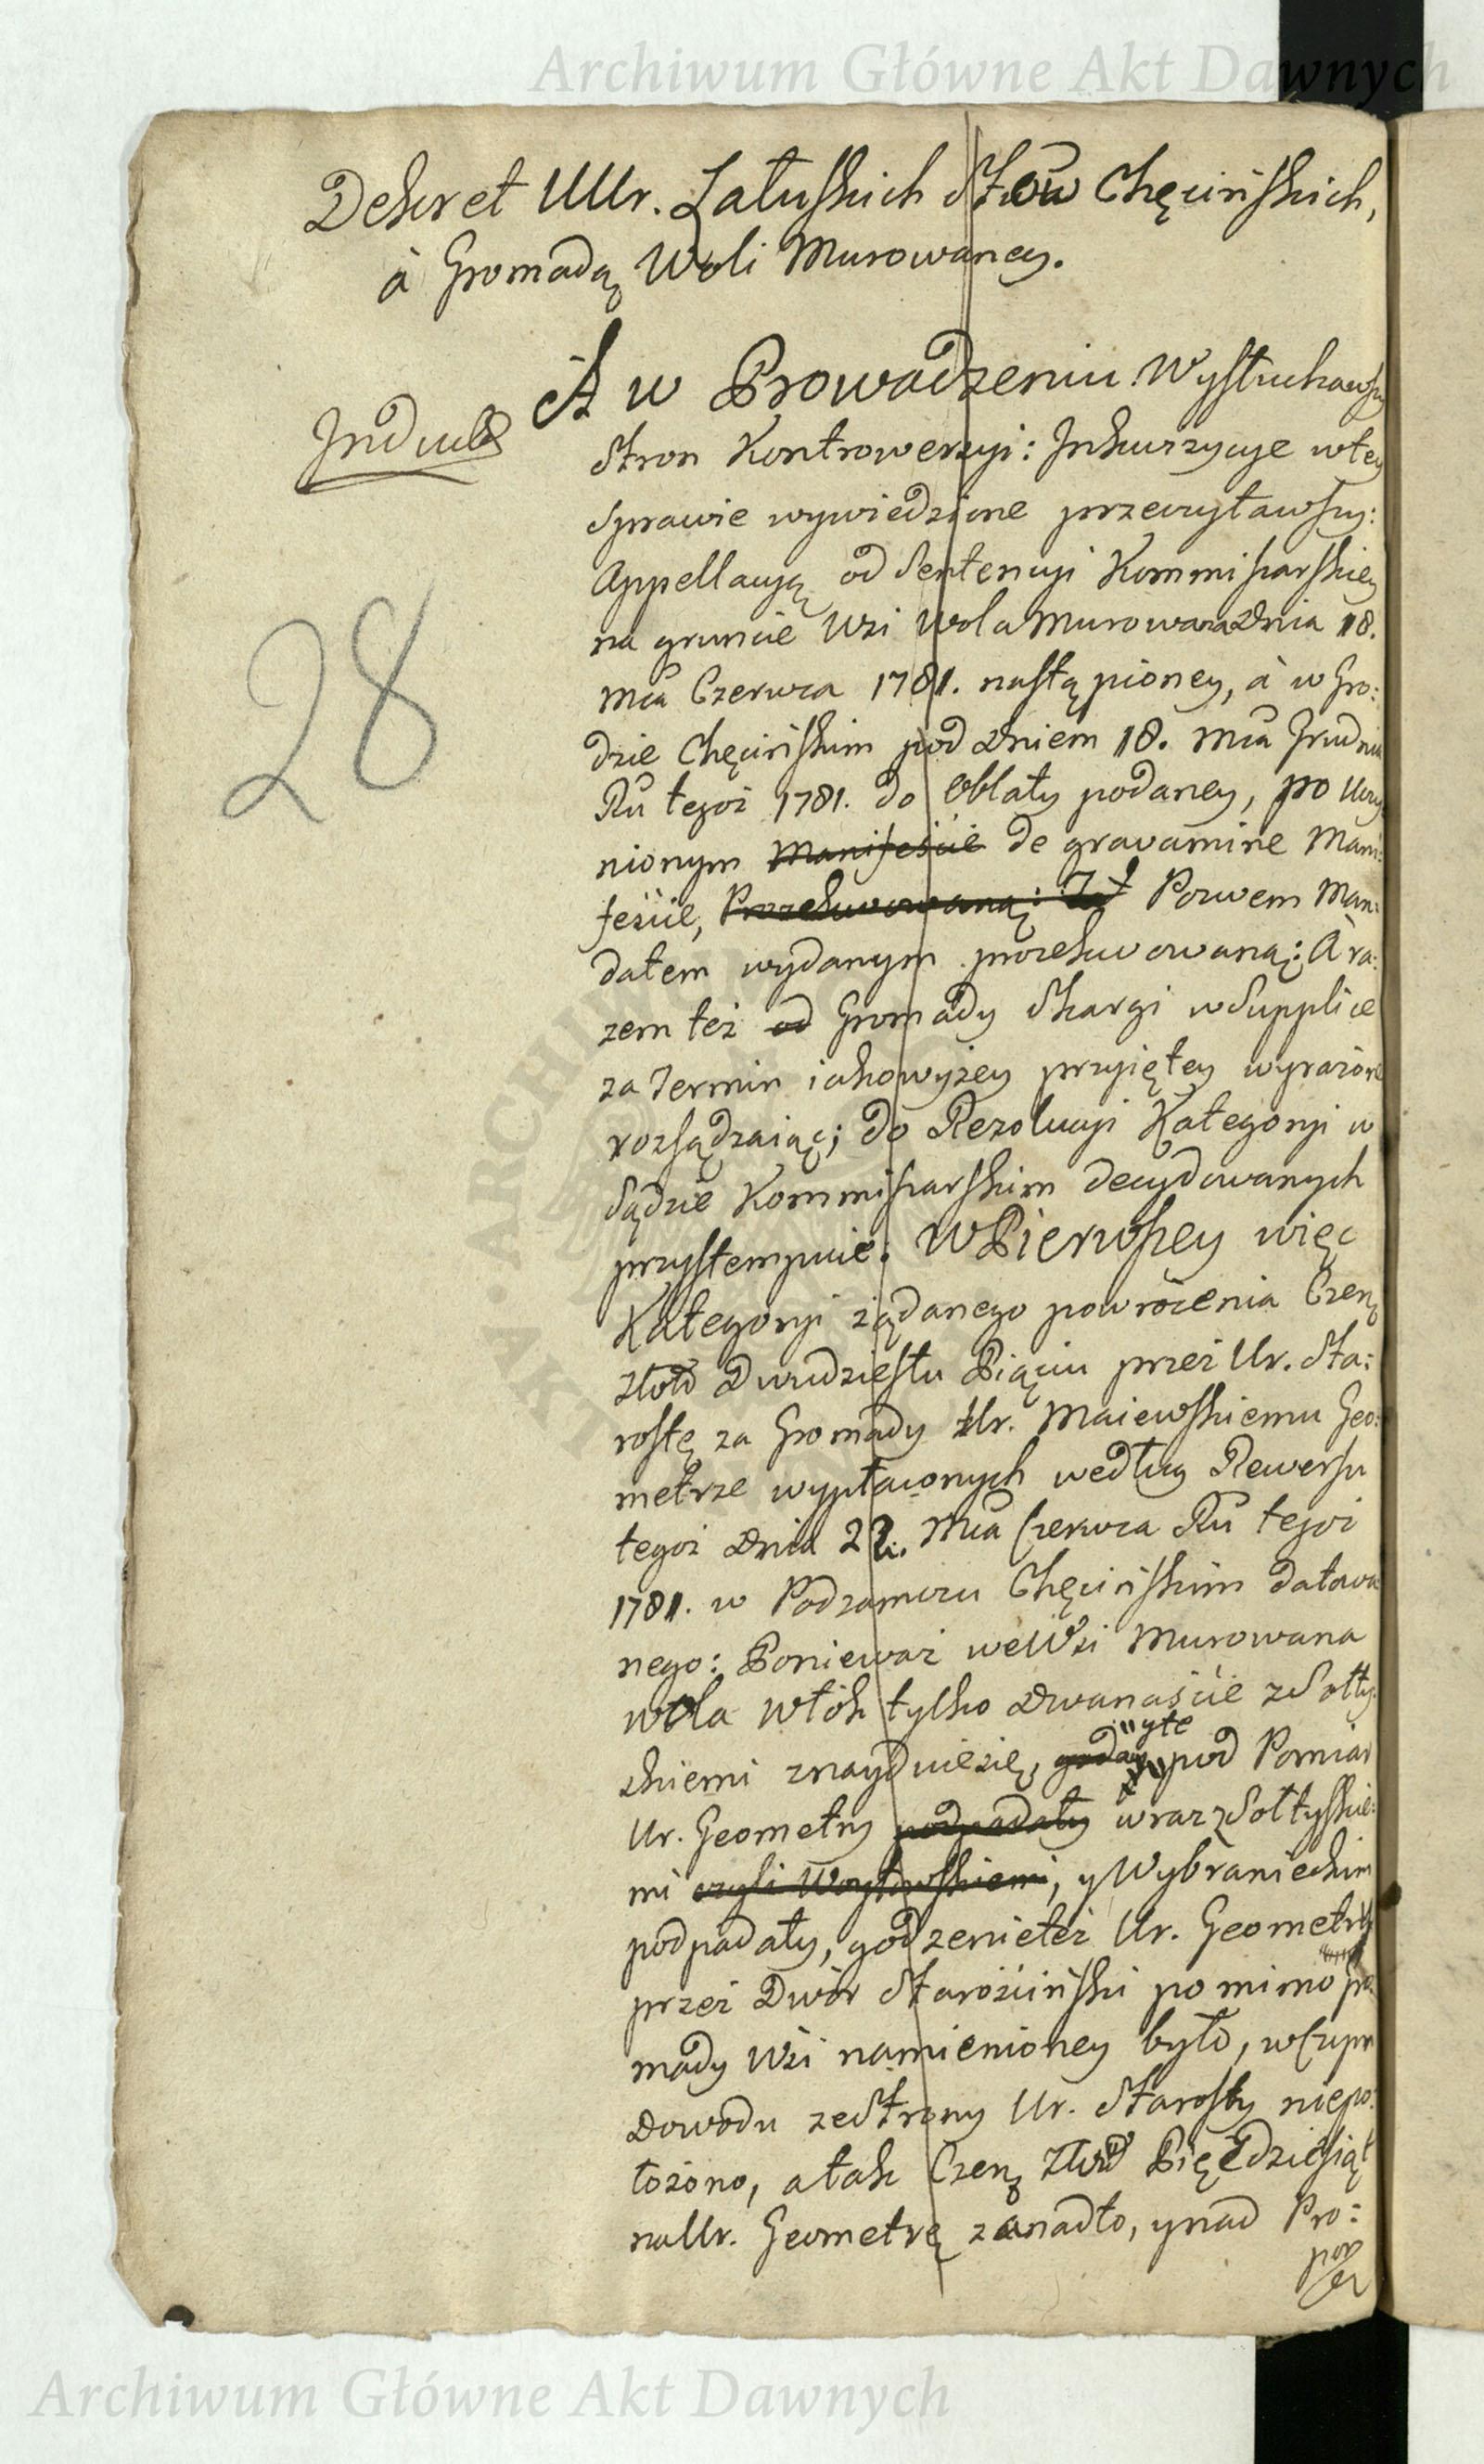 Archiwum Główne Akt Dawnych
Dekret UUr. Załuskich Stów Chęcińskich,
à Gromadą Woli Murowaney.
Induct
A w Prowadzeniu Wysłuchawszy
Stron Kontrowersyi: Inkwizycye w tey
Sprawie wywiedzione przeczytawszy:
Appellacyą od Sentencyi Kommissarskiey
na gruncie Wsi Wola Murowana Dnia 18.
Mca Czerwca 1781. nastąpioney, à w Gro:
dzie Chęcińskim pod Dniem 18. Mca Grudnia
Ru tegoż 1781. do Oblaty podaney, po Uczy
nionym Manifeście de gravamine Mani:
feście, Prozekwowaną: Pozwem Man:
datem wydanym prozekwowaną: A ra:
zem też od Gromady Skargi w Supplice
za Termin iako wyżey przyiętey wyrażone
rozsądzaiąc; do Rezolucyi Kategoryi w
Sądzie Kommissarskim decydowanych
przystempuie. W Pierwszey więc
28
Kategoryi żądanego powrócenia Czerw
Złotd Dwudziestu Piąciu przez Ur. Sta:
rostę za Gromady Ur. Maiewskiemu Geo:
metrze wypłaconych według Rewersu
tegoż Dnia 22. Mca Czerwca Ru tegoż
1781. w Podzamczu Chęcińskim datowa
nego: Ponieważ we Wsi Murowana
Wola Włók tylko Dwanaście z Sołty
skiemi znayduie się, yte
pod Pomiar
Ur. Geometry podpadały wraz z Sołtyskie:
mi czyli Woytowskiemi, y Wybranieckim
podpadały, godzenie też Ur. Geometry
przez Dwór Starościński pomimo
mady Wsi namienioney było, w czym
Dowodu ze Strony Ur. Starosty niepo:
łożono, a tak Czerw Złotd Pięćdziesiąt
na Ur. Geometrę zanadto, y nad Pro:
por
Archiwum Główne Akt Dawnych